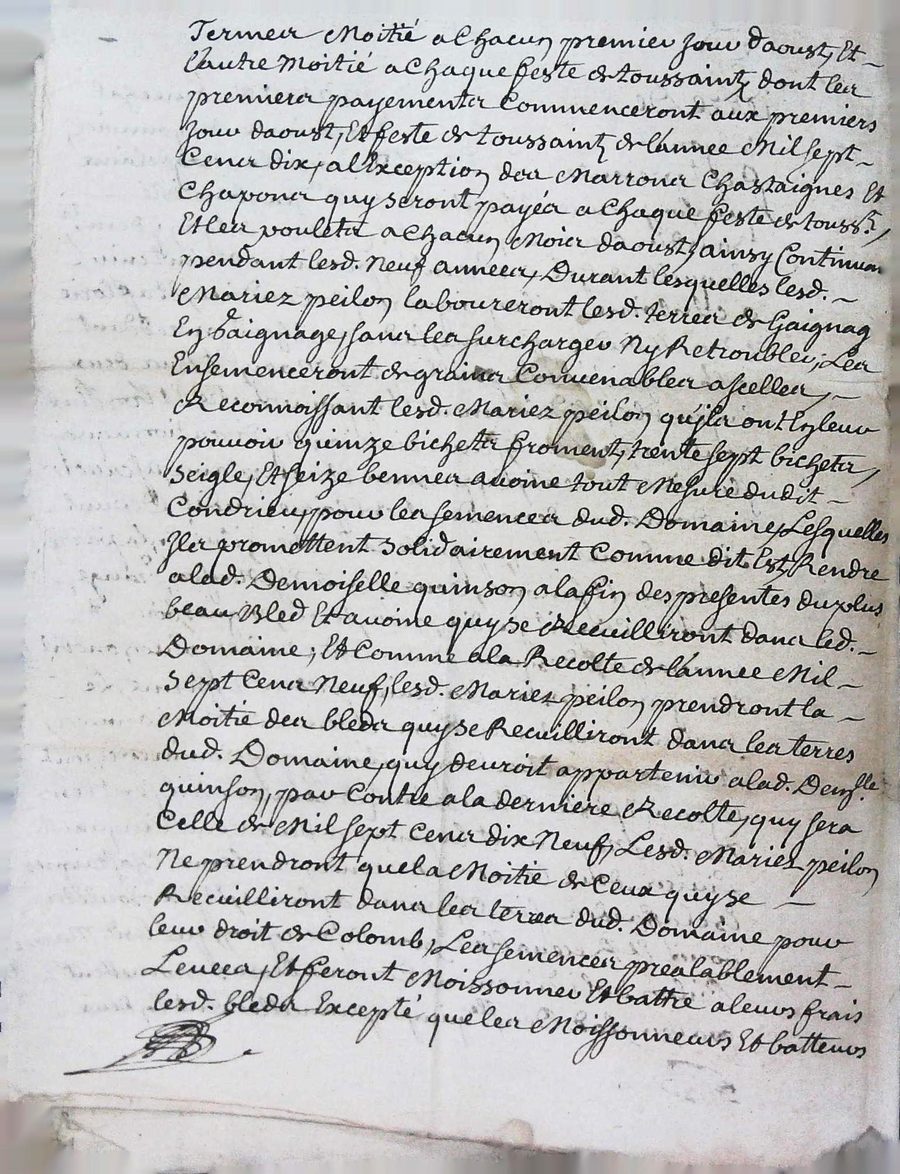 Termes Moitié a Chacun premier Jour daoust, Et -
Lautre Moitié a Chaque feste de toussaintz dont les
premiers payements Commenceront aux premiers
Jour daoust, Et feste de toussaintz de lannee Mil sept -
Cens dix, al Exception des Marrons Chastaignes Et
Chapons quy seront payés a Chaque feste de touss.t,
Et les poulets a Chacun Mois daoust, ainsy Continuan
pendant lesd. Neuf années, Durant lesquelles lesd. -
Mariez peilon laboureront lesd. terres de Gaignag
En Gaignage, sans les surcharger Ny Retroubler, Les
Ensemenceront de grains Convenables a scelles, -
Reconnoissant lesd. Mariez peilon qu'jls ont En leur
pouvoir quinze bichets froment, trente sept bichets,
seigle, Et seize bennes avoine tout Mesure dudit -
Condrieu, pour les semences dud. Domaine, Lesquelles
Jls promettent solidairement Comme dit Est, Rendre
alad. Demoiselle quinson ala fin des presentes du plus
beau Bled Et avoine quy se Recuilliront dans led. -
Domaine; Et Comme ala Recolte de lannee Mil -
sept Cens Neuf, lesd. Mariez peilon prendront la -
Moitié des bleds quy se Recuilliront dans les terres
dud. Domaine, quy devroit appartenir alad. Dem.lle
quinson, par Contre ala derniere Recolte, quy sera
Celle de Mil sept Cens dix Neuf, Lesd. Mariez peilon
Ne prendront que la Moitié de Ceux quy se -
Recuilliront dans les terres dud. Domaine pour
leur droit de Colomb, Les semences prealablement -
Levees, Et feront Moissonner Et battre a leurs frais
lesd. bleds Excepté que les Moissonneurs Et batteurs